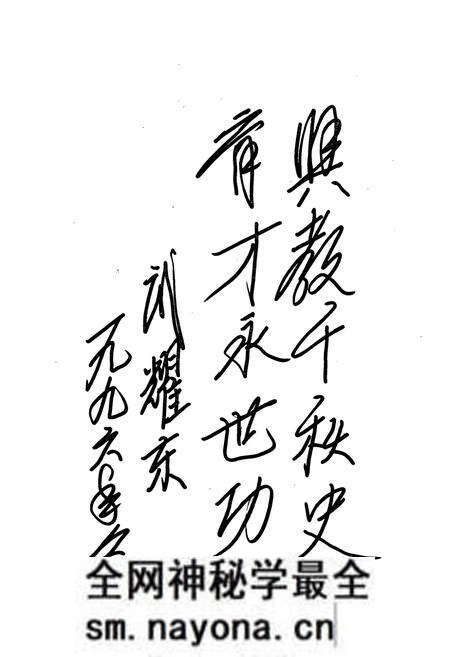 興教千秋史
育才永世功
刘耀东
一九九六年
全网神秘学最全
sm.nayona.cn